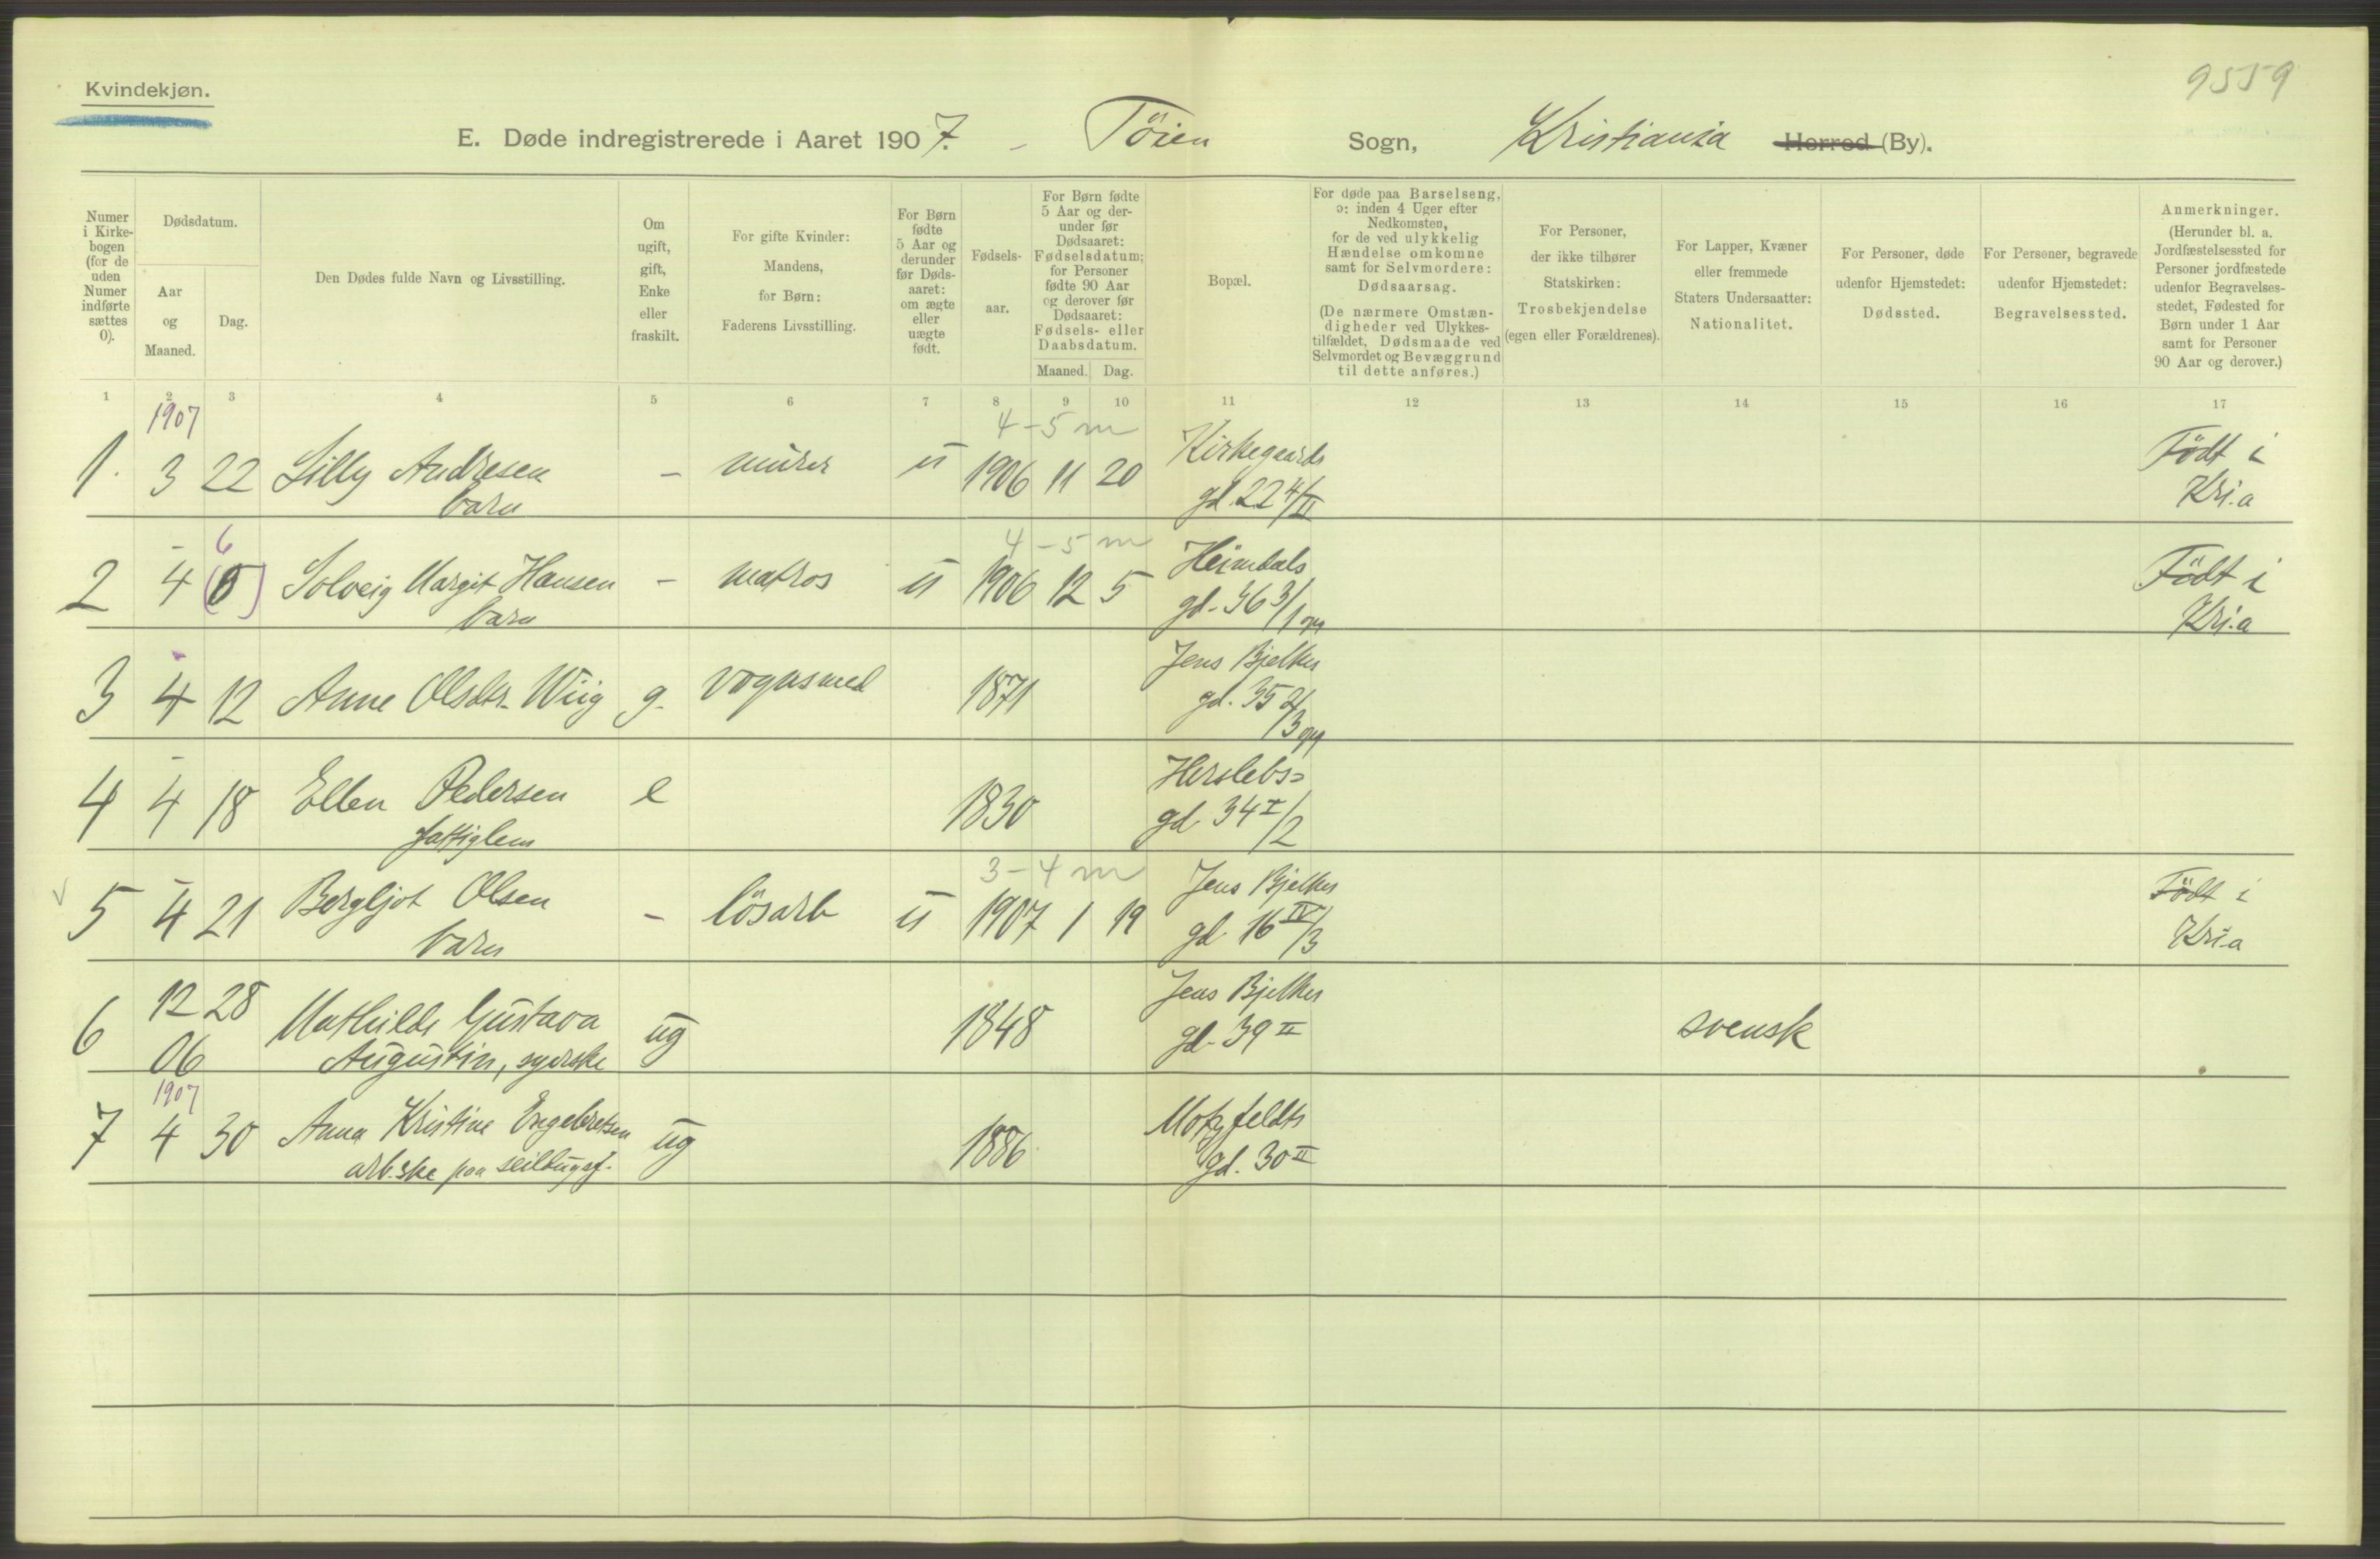 Kvindekjøn.
9559
E. Døde indregistrerede i Aaret 1907. - Töien Sogn, Kristiania Herred (By).
Numer i Kirkebogen (for de uden Numer indførte sættes 0).
Dødsdatum.
Aar og Maaned.
Dag.
Den Dødes fulde Navn og Livsstilling.
Om ugift, gift, Enke eller fraskilt.
For gifte Kvinder: Mandens, for Børn: Faderens Livsstilling.
For Børn fødte 5 Aar og derunder før Dødsaaret: om ægte eller uægte født.
Fødselsaar.
For Børn fødte 5 Aar og derunder før Dødsaaret: Fødselsdatum; for Personer fødte 90 Aar og derover før Dødsaaret: Fødsels- eller Daabsdatum.
Maaned. Dag.
Bopæl.
For døde paa Barselseng, ɔ: inden 4 Uger efter Nedkomsten, for de ved ulykkelig Hændelse omkomne samt for Selvmordere: Dødsaarsag.
(De nærmere Omstændigheder ved Ulykkestilfældet, Dødsmaade ved Selvmordet og Bevæggrund til dette anføres.)
For Personer, der ikke tilhører Statskirken: Trosbekjendelse (egen eller Forældrenes).
For Lapper, Kvæner eller fremmede Staters Undersaatter: Nationalitet.
For Personer, døde udenfor Hjemstedet: Dødssted.
For Personer, begravede udenfor Hjemstedet: Begravelsessted.
Anmerkninger. (Herunder bl. a. Jordfæstelsessted for Personer jordfæstede udenfor Begravelsesstedet, Fødested for Børn under 1 Aar samt for Personer 90 Aar og derover.)
1 2 3 4 5 6 7 8 9 10 11 12 13 14 15 16 17
1907 4-5 m
1. 3 22 Lilly Andresen - murer u 1906 11 20 Kirkegaards Födt i
barn gd. 22 4/II Kri.a
6 4-5 m
2 4 (5) Solveig Margit Hansen - matros u 1906 12 5 Heimdals Födt i
barn gd. 36 3/1 opg Kri.a
3 4 12 Anne Olsdtr. Wiig g. vognsmed 1871 Jens Bjelkes
gd. 35 2/3 opg
4 4 18 Ellen Pedersen e 1830 Herslebs=
fattiglem gd. 34 I/2
3-4 m
5 4 21 Bergljot Olsen - lösarb u 1907 1 19 Jens Bjelkes Födt i
barn gd. 16 IV/3 Kri.a
6 12 28 Mathilde Gustava ug 1848 Jens Bjelkes svensk
06 Augustin, syerske gd. 39 II
1907
7 4 30 Anna Kristine Engebretsen ug 1886 Motzfeldts
arb.ske paa seildugsf. gd. 30 II